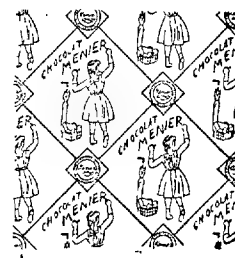 CHOCOLAT
MENIER
CHOCOLAT
ER
CHOCOLAT
MENIER
ER
CHOCOLAT
MENIER
CHOCOLAT